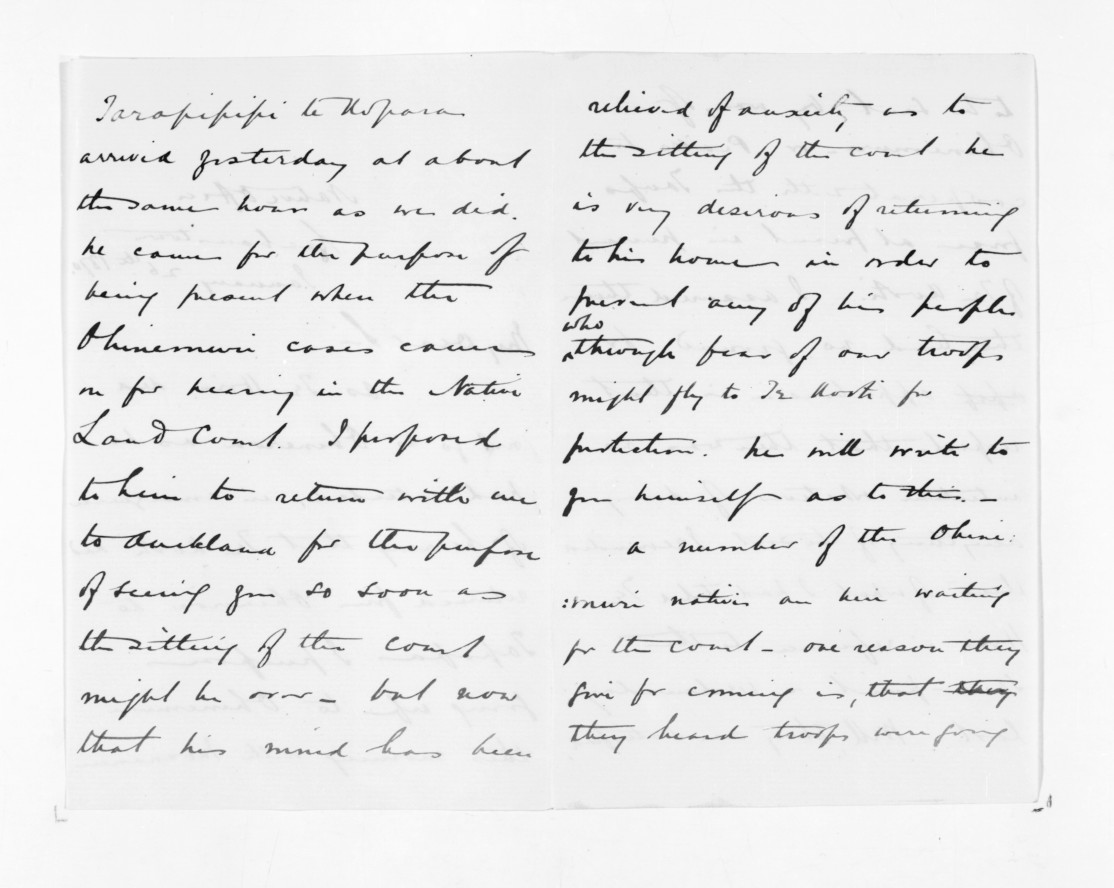 Tarapipipi te Kopara
arrived yesterday at about
the same hour as we did.
he came for the purpose of
being present when the
Ohinemuri cases came
on for hearing in the Native
Land Court. I proposed
to him to return with me
to Auckland for the purpose
of seeing you so soon as
the sitting of the court
might be over – but now
that his mind has been
relieved of anxiety as to
the sitting of the court he
is very desirous of returning
to his home in order to
prevent any of his people
who
through fear of our troops
might fly to Te Kooti for
protection. he will write to
you himself as to this. –
a number of the Ohine:
:muri natives are here waiting
for the court – one reason they
give for coming is, that they
they heard troops were going